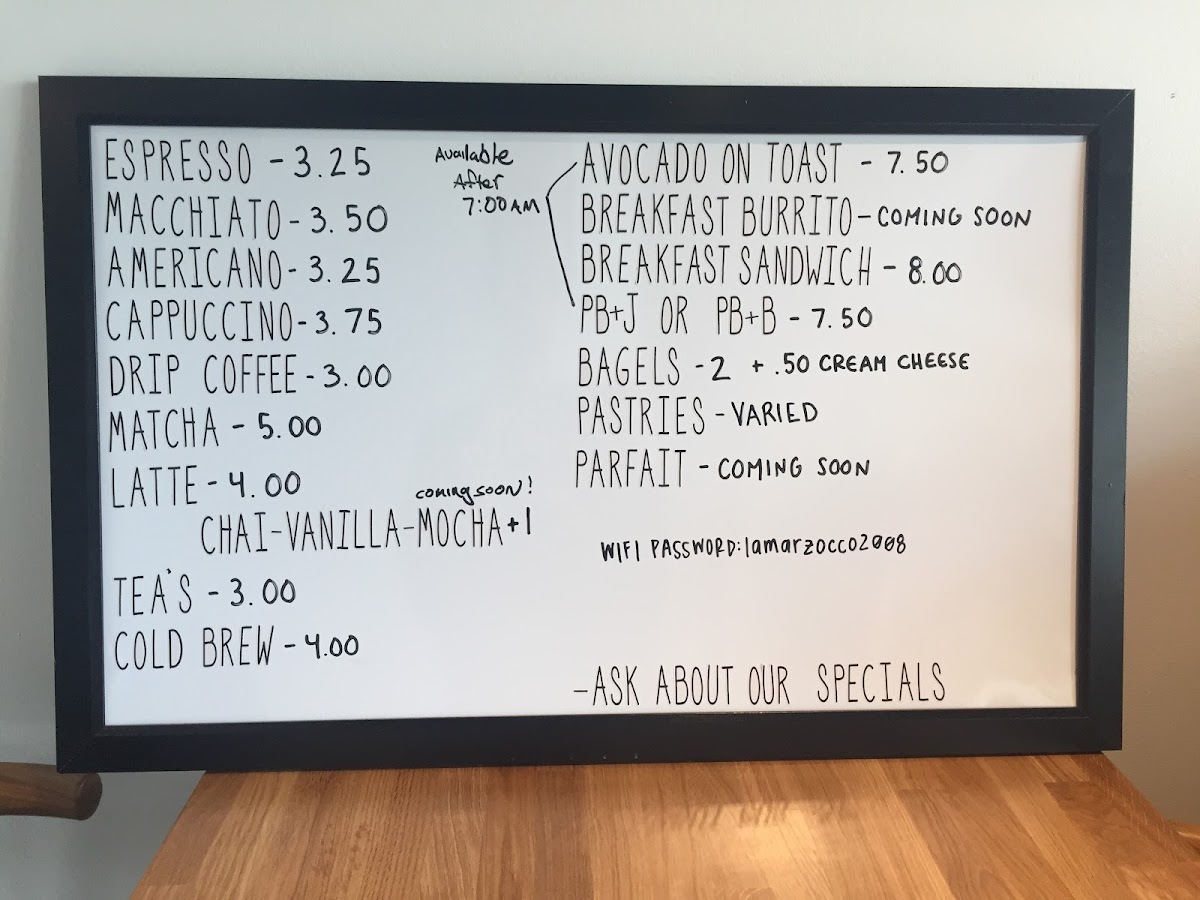 ESPRESSO - 3.25
MACCHIATO - 3.50
AMERICANO - 3.25
CAPPUCCINO - 3.75
DRIP COFFEE - 3.00
MATCHA - 5.00
LATTE - 4.00
coming soon!
CHAI-VANILLA-MOCHA +1
TEA'S - 3.00
COLD BREW - 4.00
Available
After
7:00 AM
AVOCADO ON TOAST - 7.50
BREAKFAST BURRITO - COMING SOON
BREAKFAST SANDWICH - 8.00
PB+J OR PB+B - 7.50
BAGELS - 2 + .50 CREAM CHEESE
PASTRIES - VARIED
PARFAIT - COMING SOON
WIFI PASSWORD: lamarzocco2008
-ASK ABOUT OUR SPECIALS